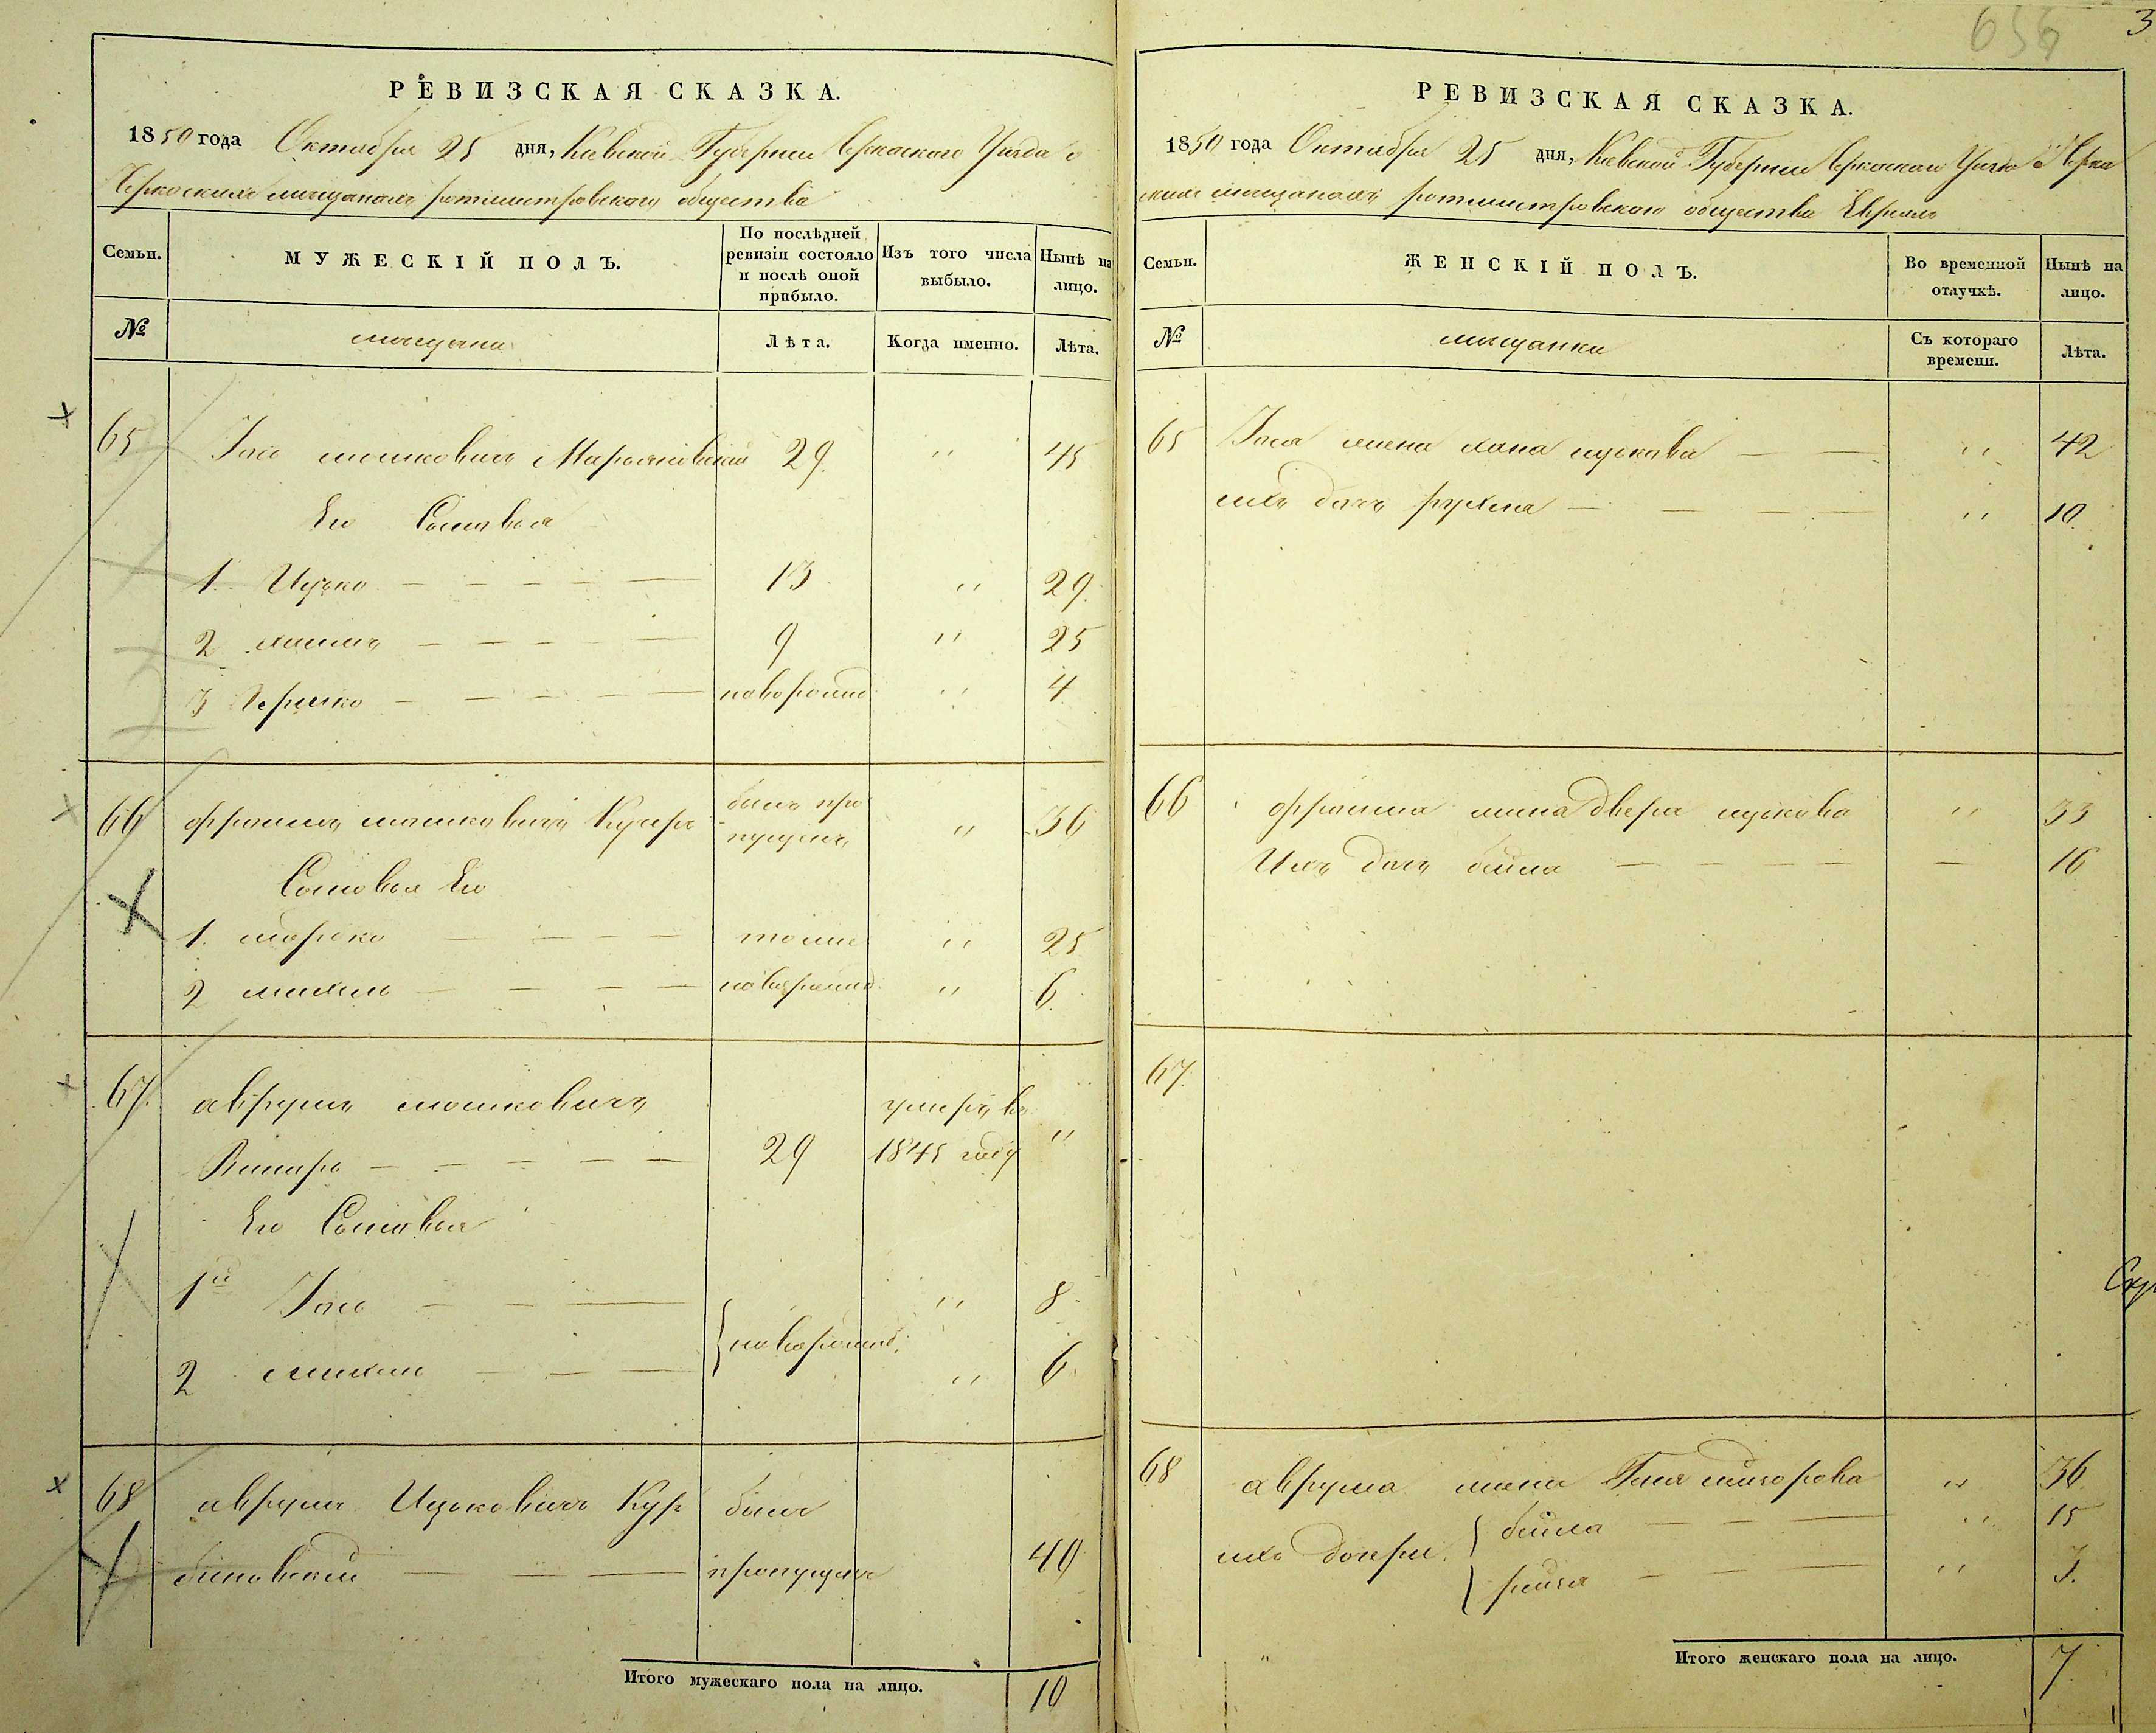 656
3
РЕВИЗСКАЯ СКАЗКА.
1850 года Октября 25 дня, Киевской Губернии Черкаского Уезда о
Черкаскихъ мещанахъ ротмистровского общества
Семьи.
МУЖЕСКІЙ ПОЛЪ.
По послѣдней ревизіи состояло и послѣ оной прибыло.
Изъ того числа выбыло.
Нынѣ на лицо.
№
мещане
Лѣта.
Когда именно.
Лѣта.
65 Іось мошковичъ Марьяновскій 29 " 45
Его Сыновья
1. Ицько — — — — 13 " 29
2 хаимъ — — — — 9 " 25
3 Гершко — — — — новорожд. " 4
66 фроимъ мошковичъ былъ про
пущенъ " 36
Сыновья Его
1. шорохо — — — — тоже " 25
2 михель — — — — новорожд. " 6
67. аврумъ мошковичъ умеръ въ
— — — — — 29 1845 году "
Его Сыновья
1й Іось — — — " 8
{новорожд.
2 михель — — — " 6
68 аврумъ Ицьковичъ Кур былъ
биновский — — — пропущенъ 40
Итого мужескаго пола на лицо. 10
РЕВИЗСКАЯ СКАЗКА.
1850 года Октября 25 дня, Киевской Губернии Черкаского Уезда о Черка
скихъ мещанахъ ротмистровского общества Евреяхъ
Семьи.
ЖЕНСКІЙ ПОЛЪ.
Во временной отлучкѣ.
Нынѣ на лицо.
№
мещанки
Съ котораго времени.
Лѣта.
65 Іося жена хана ицькова — — " 42
ихъ дочь рухля — — — — " 10
66 фроима жена двера ицькова " 33
Ихъ дочь бейла — — — — — 16
67.
68 аврума жена " 36
ихъ дочери { бейла — — — " 15
{ — — — " 3.
Итого женскаго пола на лицо. 7